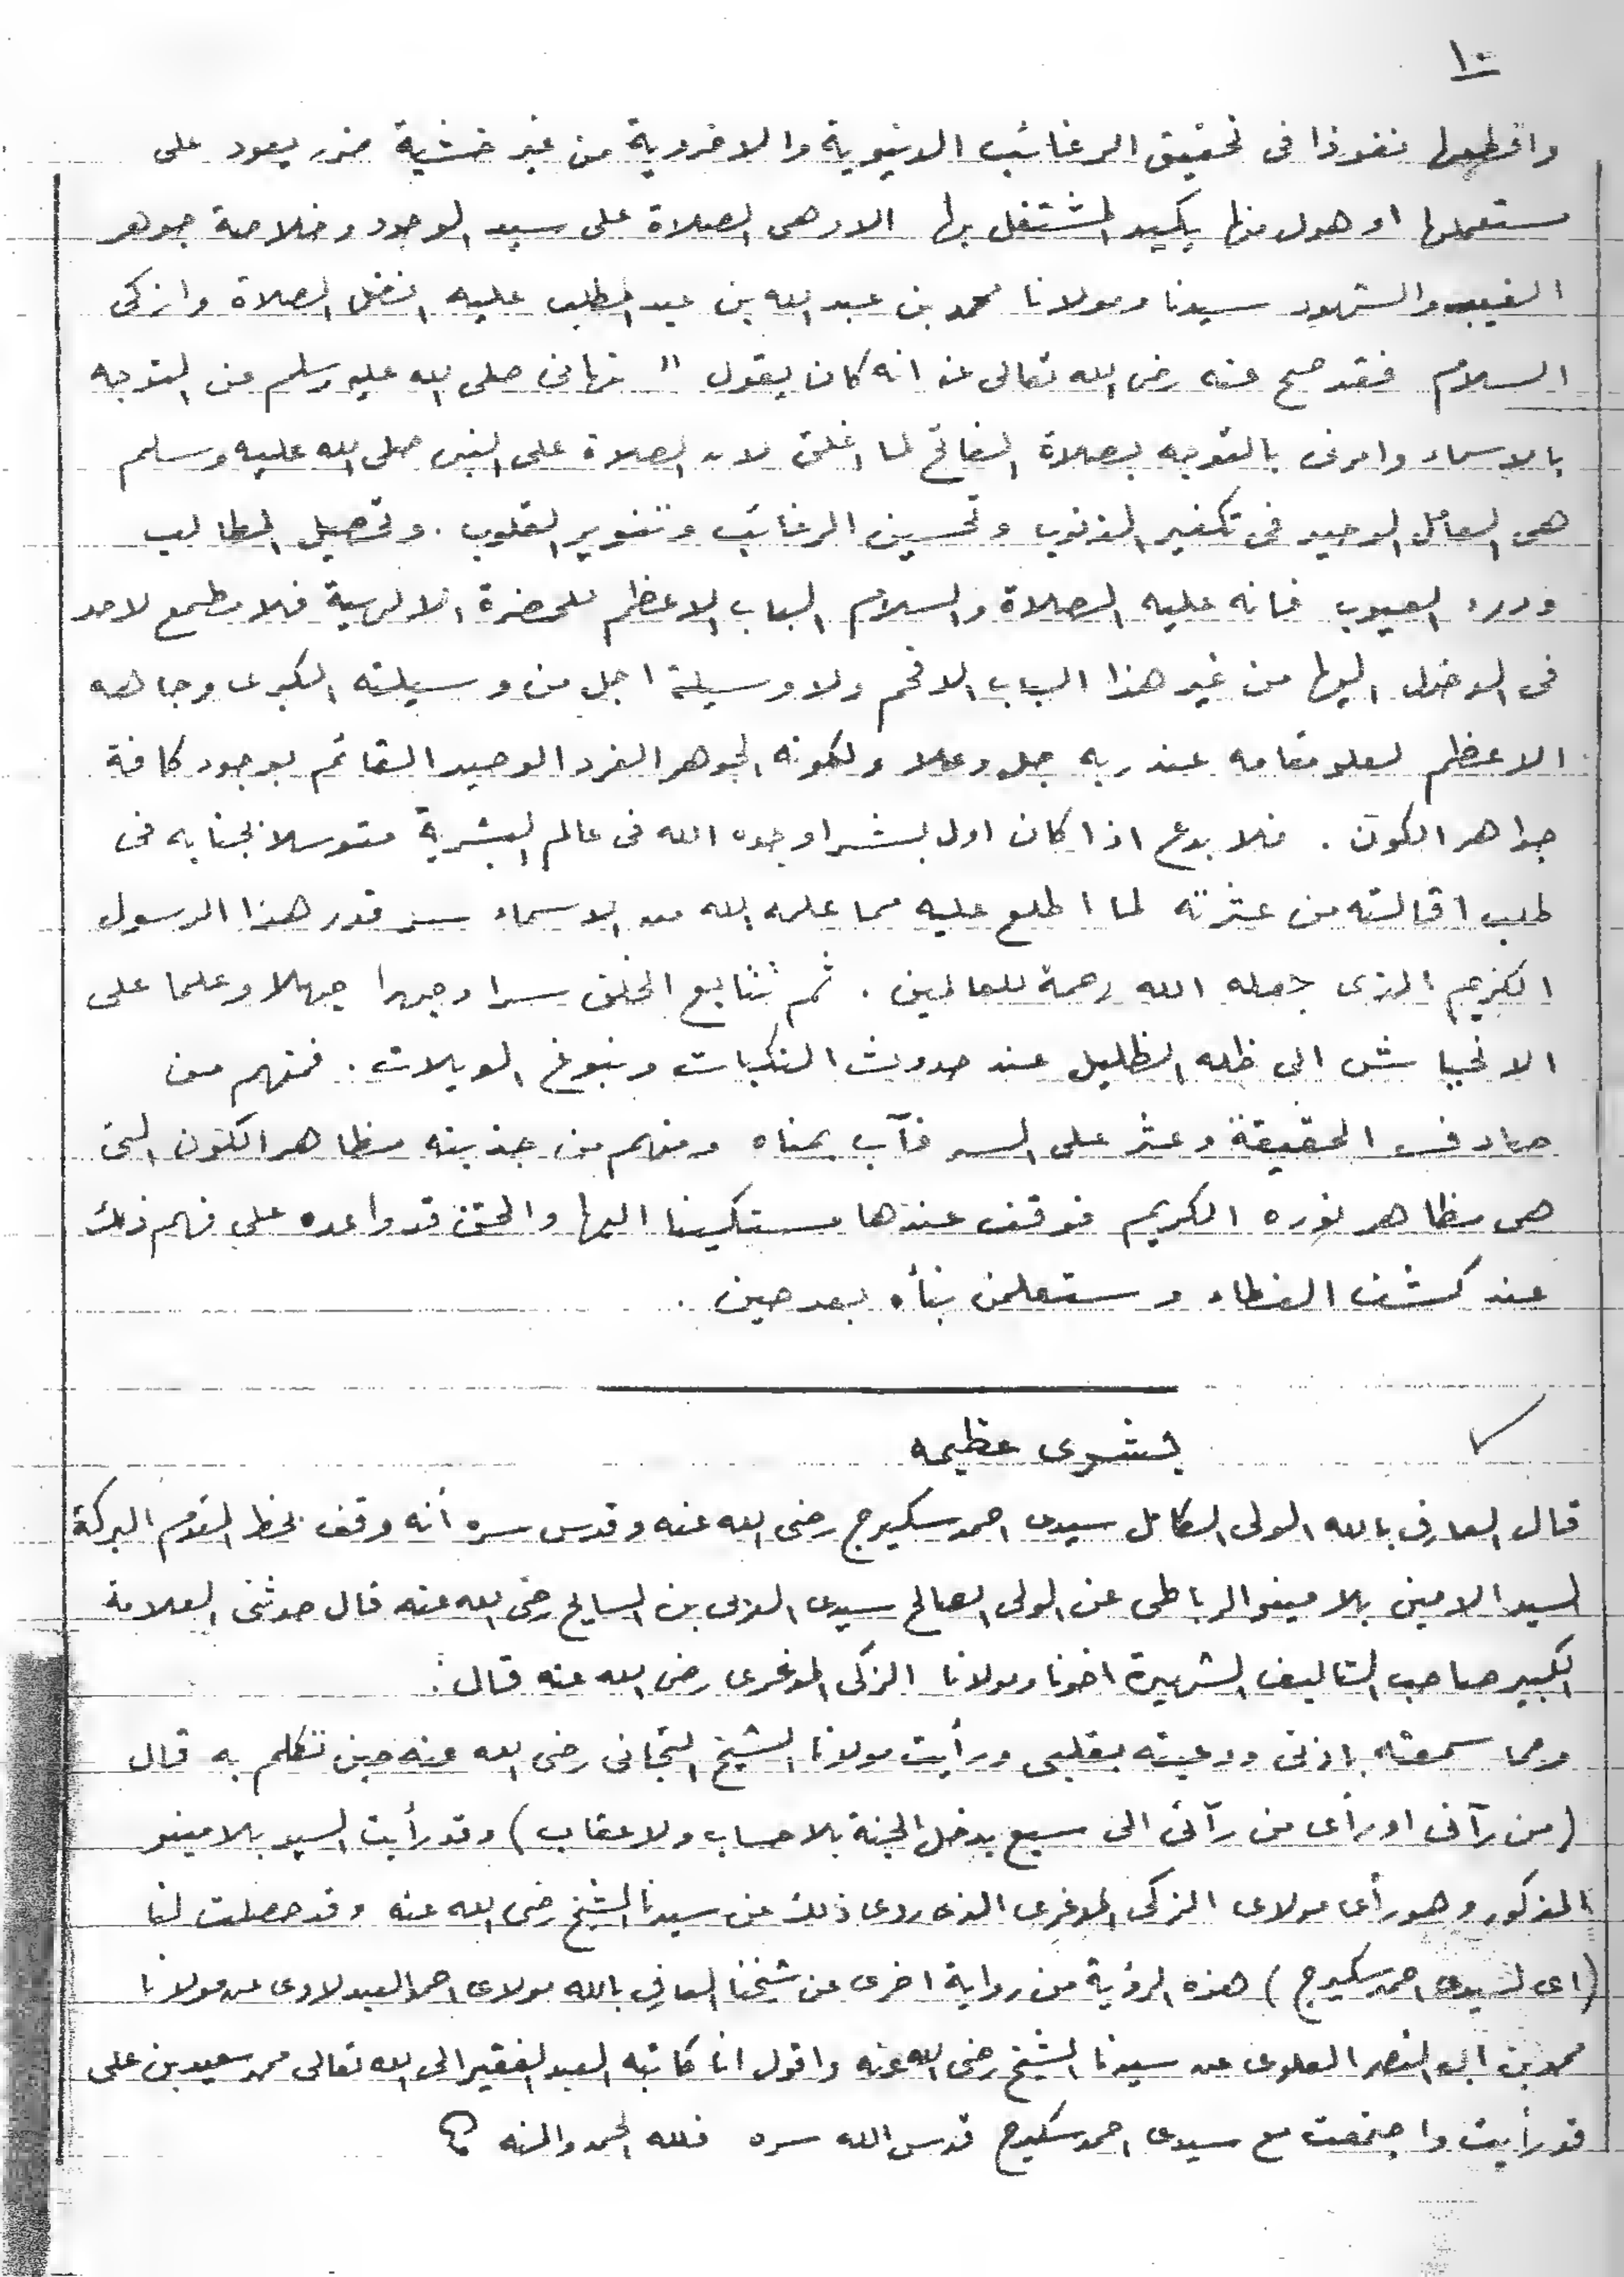 ١٠
واقطعها نفوذا فى تحقيق الرغائب الدنيوية والاخروية من غير خشية ضرر يعود على
مستعملها او هول منها يكيد المشتغل بها الا وهى الصلاة على سيد الوجود وخلاصة جوهر
الغيب والشهود سيدنا ومولانا محمد بن عبد الله بن عبد المطلب عليه افضل الصلاة وازكى
السلام فقد صح عنه رضى الله تعالى عنه انه كان يقول " نهانى صلى الله عليه وسلم عن التوجه
بالاسماء وامرنى بالتوجه بصلاة الفاتح لما اغلق لان الصلاة على النبى صلى الله عليه وسلم
هى العامل الوحيد فى تكفير الذنوب وتحسين الرغائب وتنوير القلوب . وتحصيل المطالب
ودرء العيوب فانه عليه الصلاة والسلام الباب الاعظم للحضرة الالهية فلا مطمع لاحد
فى الدخول اليها من غير هذا الباب الافخم ولا وسيلة اجل من وسيلته الكبرى وجاهه
الاعظم لعلو مقامه عند ربه جل وعلا ولكونه الجوهر الفرد الوحيد القائم بوجود كافة
جواهر الكون . فلا بدع اذا كان اول بشر اوجده الله فى عالم البشرية متوسلا بجنابه فى
طلب اقالته من عثرته لما اطلع عليه مما علمه الله من الاسماء سر قدر هذا الرسول
الكريم الذى جعله الله رحمة للعالمين . ثم تتابع الخلق سرا وجهرا جهلا وعلما على
الانحياش الى ظله الظليل عند حدوث النكبات ونبوغ الويلات . فمنهم من
صادف الحقيقة وعثر على السر فآب بمناه ومنهم من جذبته مظاهر الكون التى
هى مظاهر نوره الكريم فوقف عندها مستكينا اليها والحق قد واعده على فهم ذلك
عند كشف الغطاء وستعلمن نبأه بعد حين .
بشرى عظيمه
قال العارف بالله الولى الكامل سيدى احمد سكيرج رضى الله عنه وقدس سره أنه وقف بخط المقدم البركة
السيد الامين بلامينو الرباطى عن الولى الصالح سيدى العربى بن السايح رضى الله عنه قال حدثنى العلامة
الكبير صاحب التاليف الشهيرة اخونا ومولانا الزكى المدغرى رضى الله عنه قال :
ومما سمعته باذنى ووعيته بقلبى ورأيت مولانا الشيخ التجانى رضى الله عنه حين تكلم به قال
(من رآنى او رأى من رآنى الى سبع يدخل الجنة بلا حساب ولا عقاب) وقد رأيت السيد بلامينو
المذكور وهو رأى مولاى الزكى المدغرى الذى روى ذلك عن سيدنا الشيخ رضى الله عنه وقد حصلت لنا
(اى لسيدى احمد سكيرج) هذه الرؤية من رواية اخرى عن شيخنا العارف بالله مولاى احمد العبدلاوى عن مولانا
محمد بن ابى النصر العلوى عن سيدنا الشيخ رضى الله عنه واقول انا كاتبه العبد الفقير الى الله تعالى محمد سعيد بن على
قد رأيت واجتمعت مع سيدى احمد سكيرج قدس الله سره فلله الحمد والمنه